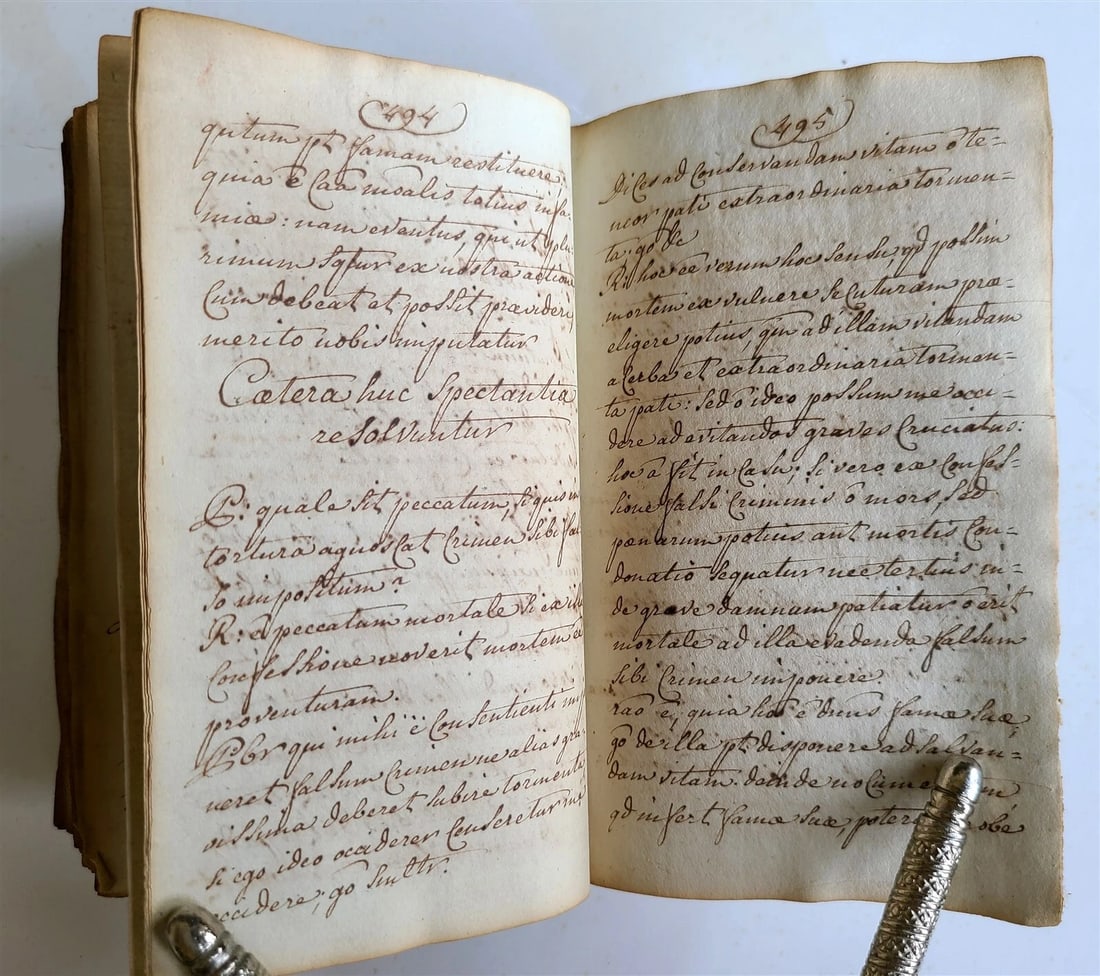 494
qntum pt famam restituere;
quia ē Caā moalis totius infa-
miæ: nam eventus, qui ut plu
rimum sqtur ex nostra actione
Cum debeat et possit prævideri
merito nobis imputatur
Cætera huc Spectantia
resolvuntur
P: quale sit peccatum, si quis in
tortura agnoscat Crimen sibi fal
so impositum?
R: ē peccatum mortale si ex
Confessione noverit mortem
proventuram.
Pbr qui mihi Consentienti
neret falsum Crimen ne alias gra
vissima deberet subire tormenta
si ego ideo occiderer Censeretur me
occidere; gō Smltr.
495
Dices ad Conservandam vitam ō te-
neor pati extraordinaria tormen-
ta: gō &c
R: hoc eē verum hoc sensu, qd possim
mortem ex vulnere secuturam præ-
eligere potius, qm ad illam vitandam
acerba et extraordinaria tormen-
ta pati: sed ō ideo possum me occi-
dere ad evitandos graves Cruciatus:
hoc ā fit in Casu; si vero ex Confes-
sione falsi Criminis ō mors, sed
pœnarum potius aut mortis Con-
donatio sequatur nec tertius in-
de grave damnum patiatur ō erit
mortale ad illa evadenda falsum
sibi Crimen imponere
rāo ē, quia hō ē dnus famæ suæ,
gō de illa pt disponere ad salvan-
dam vitam. deinde
qd infert famæ suæ,